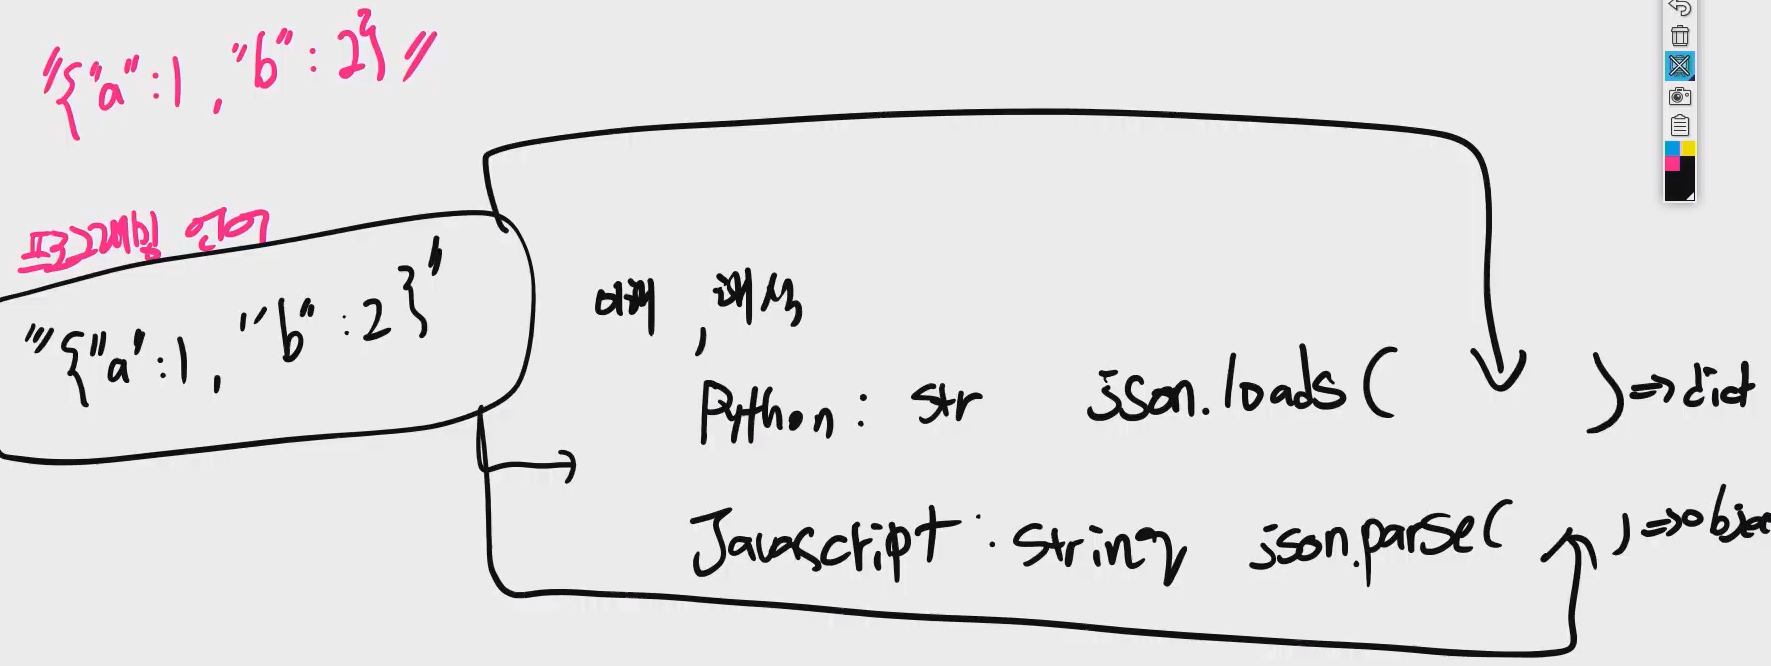 "{"a":1, "b":2}"
프로그래밍 언어
"'{"a":1, "b":2}"
이해, 해석
Python: str json.loads( )=>dict
Javascript: string json.parse( )=>objec